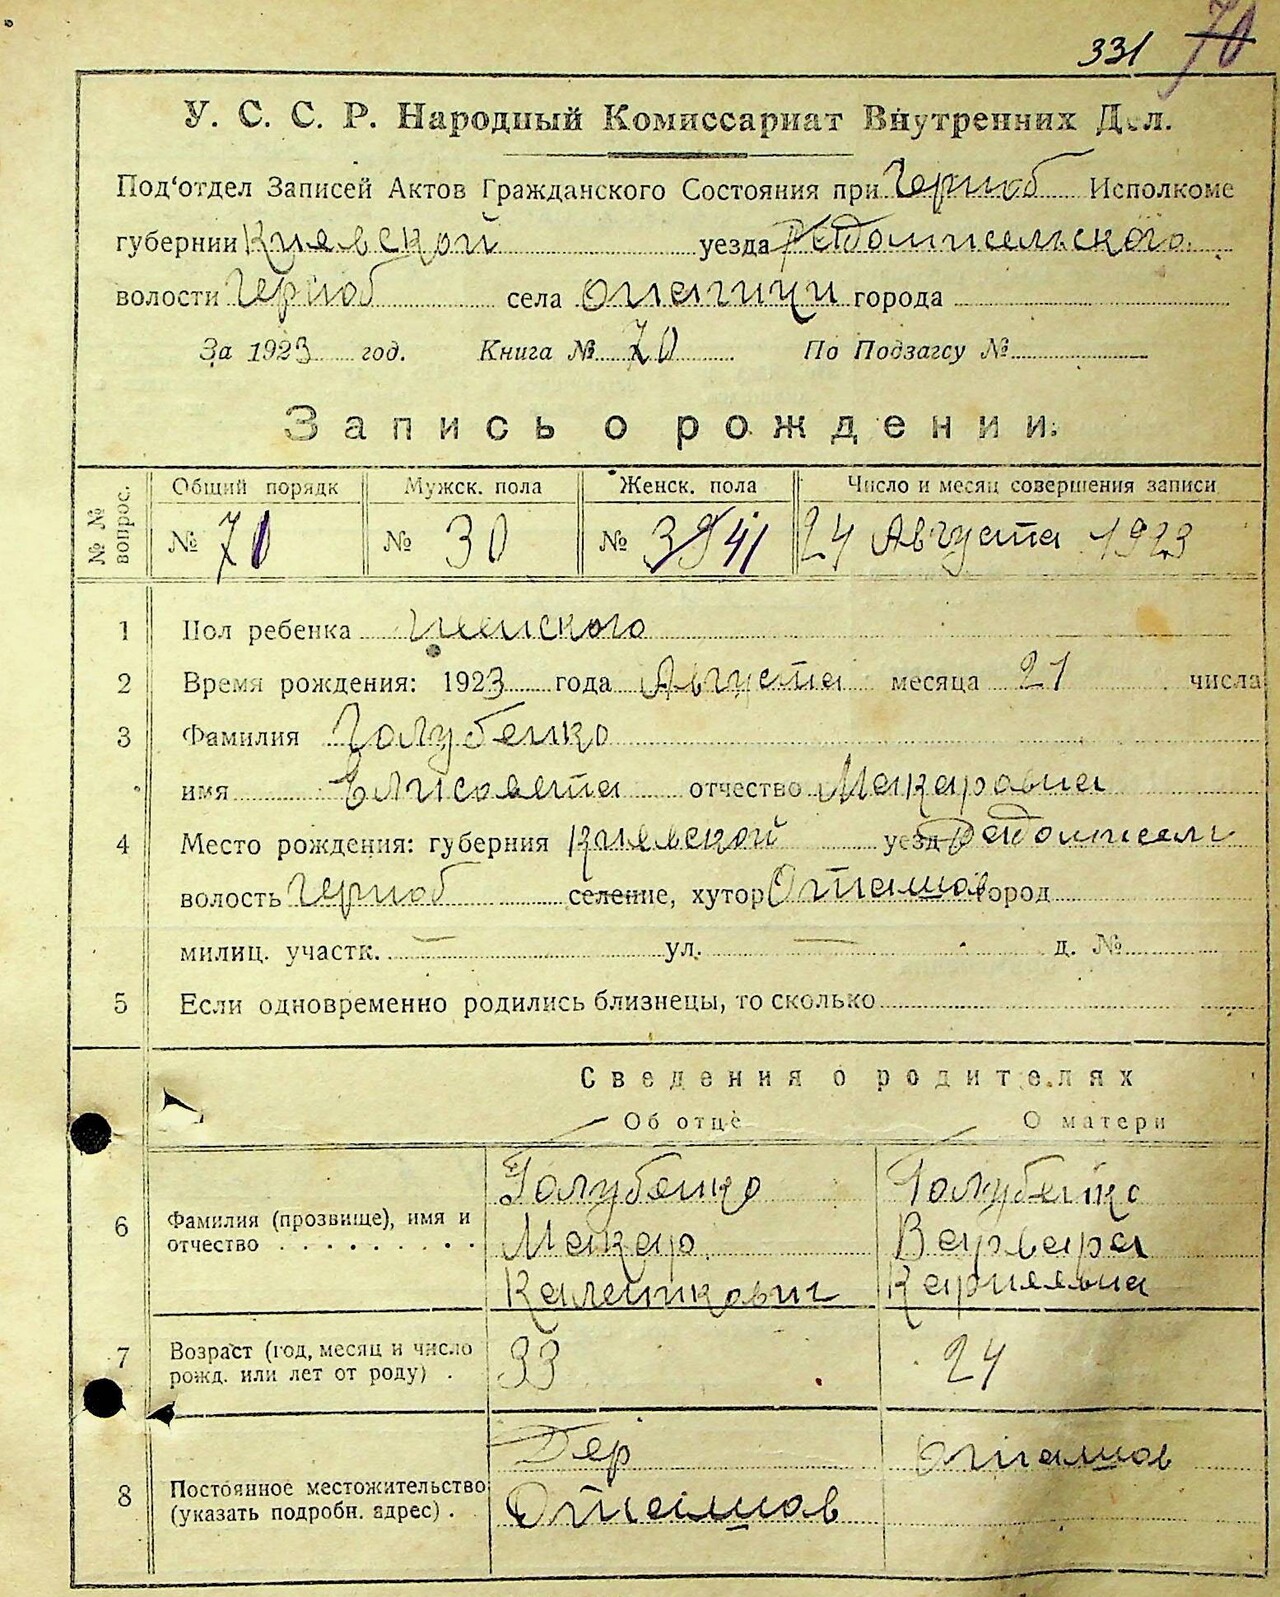 331 70
У. С. С. Р. Народный Комиссариат Внутренних Дел.
Под‘отдел Записей Актов Гражданского Состояния при Черноб Исполкоме
губернии Киевской уезда Радомысельського
волости Черноб села города
За 1923 год. Книга № 70 По Подзагсу №
Запись о рождении.
№ № вопрос. Общий порядк Мужск. пола Женск. пола Число и месяц совершения записи
№ 70 № 30 № 39 41 24 Августа 1923
1 Пол ребенка женского
2 Время рождения: 1923 года Августа месяца 21 числа
3 Фамилия Голубенко
имя Елисовета отчество Макаровна
4 Место рождения: губерния Киевской уезд Радомысел
волость Черноб селение, хутор Оташов город
милиц. участк. — ул. — д. №
5 Если одновременно родились близнецы, то сколько
Сведения о родителях
Об отце О матери
6 Фамилия (прозвище), имя и отчество Голубенко Голубенко
Макар Варвара
Каленикович Карпиевна
7 Возраст (год, месяц и число рожд. или лет от роду) . 33 24
8 Постоянное местожительство (указать подробн. адрес) . Дер Оташов
Оташов